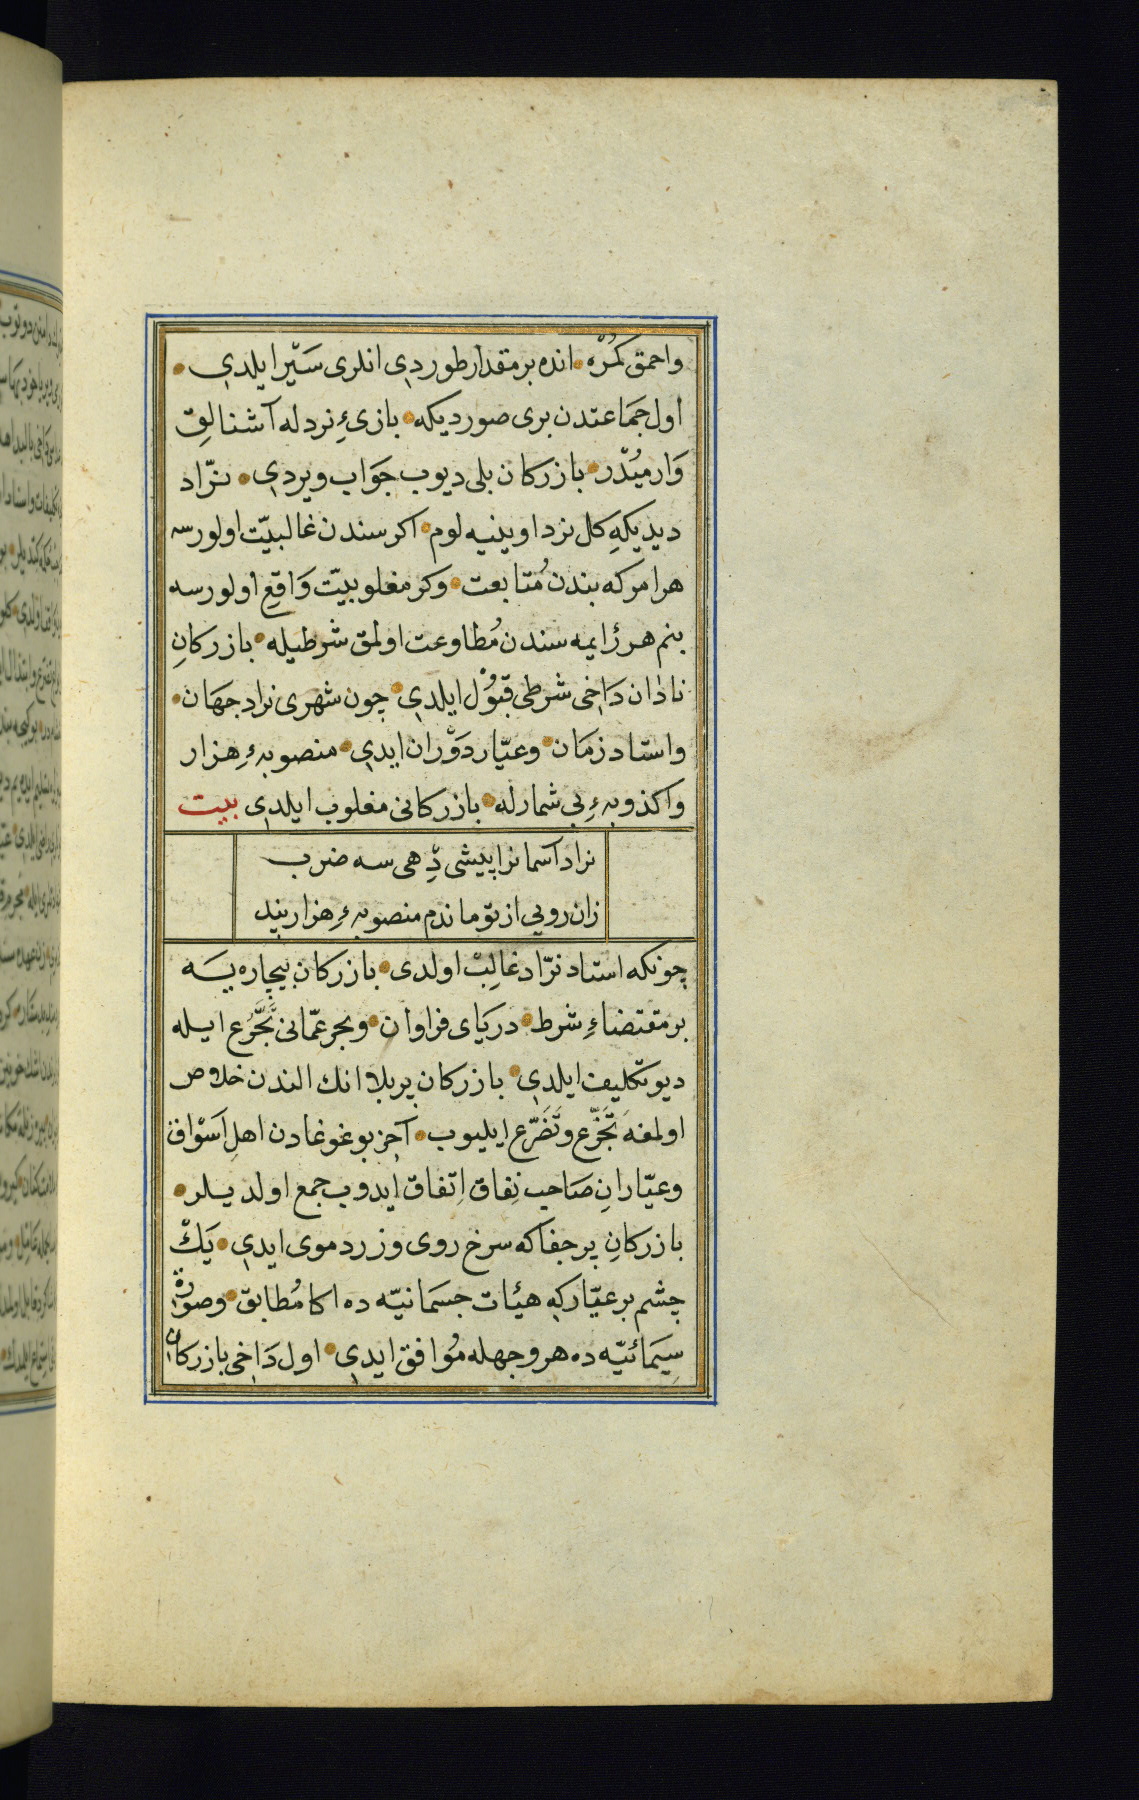 واحمق كمُرّه انده بر مقدار طوردى انلرى سَيْر ايلدى
اول جَمَاعتدن برى صورديكه بازىءِ نردله آشنالِق
وَارميُدْر بازركان بلى ديوب جَوَاب ويردى نرّاد
ديديكهِ كل نرد اوينيه لوم اكر سندن غالبيّت اولورسه
هر امركه بندن مُتابعت وكر مغلوبيّت وَاقعِ اولورسه
بنم هر رَٔايمه سندن مُطاوعت اولمق شرطيله بازركانِ
نادَان دَاخى شرطى قبُوْل ايلدى چون شهرى نراد جهَان
واستاد زمَان وعيّار دَوْران ايدى منصوبهءِ هزار
واكذوبهءِ بى شمارله بازركانى مغلوب ايلدى بيت
نراد آسمانرا پيشى دِهى سه ضرب
زان رويى از تو ماندم منصوبهءِ هزار بند
چونكه استاد نرّاد غالِبْ اولدى بازركان بيچاره يه
بر مقتضاءِ شرط دريَاى فراوان وبحر عمّانى تَجَرُّع ايله
ديو تكليف ايلدى بازركان پر بلا انك الندن خلاص
اولمغه تجَزُّع وتَضَرُّع ايليوب آخِر بو غوغادن اهلِ اَسْواق
وعيّارانِ صَاحب نِفاق اِتفاق اِيدوب جمع اولديلر
بازركانِ پر جفاكه سرخ روى وزرد موى ايدى يَكْ
چشم بر عيّاركه هيئات جسمَانيّه ده اكا مُطابق وصورة
سِيمَائيّه ده هر وجهله مُوافق ايدى اول دَاخى بازركان